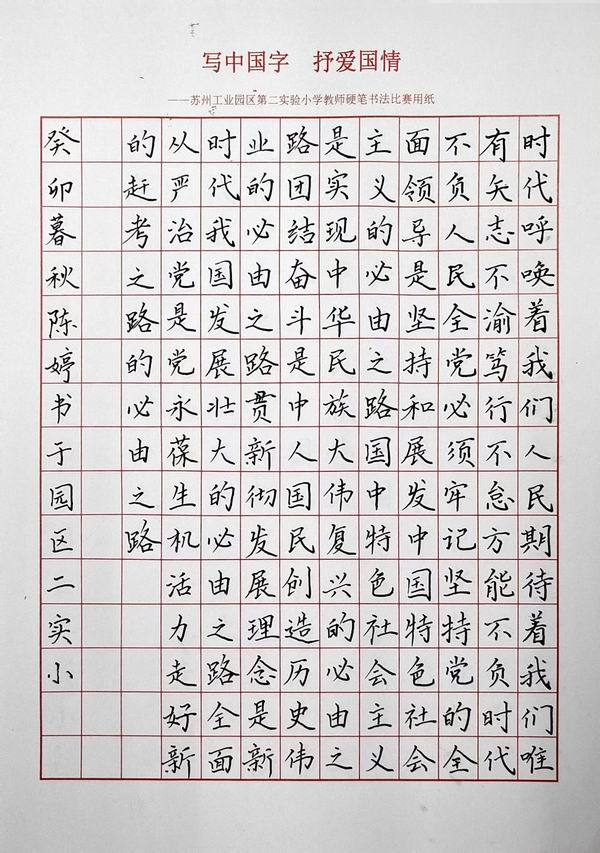 写中国字 抒爱国情
——苏州工业园区第二实验小学教师硬笔书法比赛用纸
时代呼唤着我们人民期待着我们唯
有矢志不渝笃行不怠方能不负时代
不负人民全党必须牢记坚持党的全
面领导是坚持和发展中国特色社会
主义的必由之路中国特色社会主义
是实现中华民族伟大复兴的必由之
路团结奋斗是中国人民创造历史伟
业的必由之路贯彻新发展理念是新
时代我国发展壮大的必由之路全面
从严治党是党永葆生机活力走好新
的赶考之路的必由之路
癸卯暮秋陈婷书于园区二实小